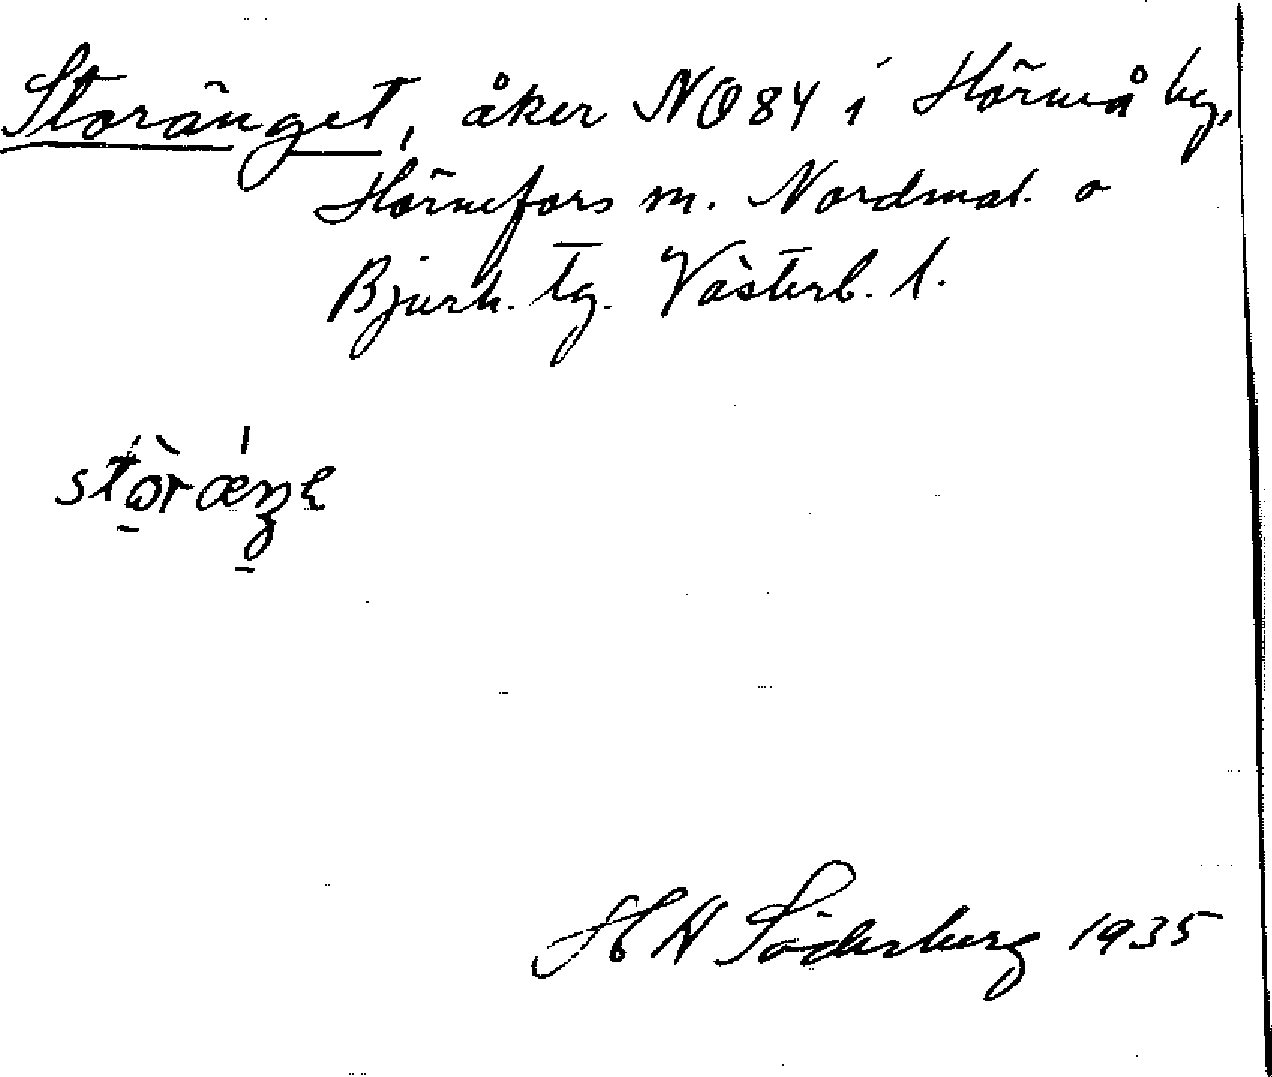 Storänget, åker NO 84 i Hörneå by,
Hörnefors m. Nordmal. o
Bjurh. tg. Västerb. l.
H N Söderberg 1935